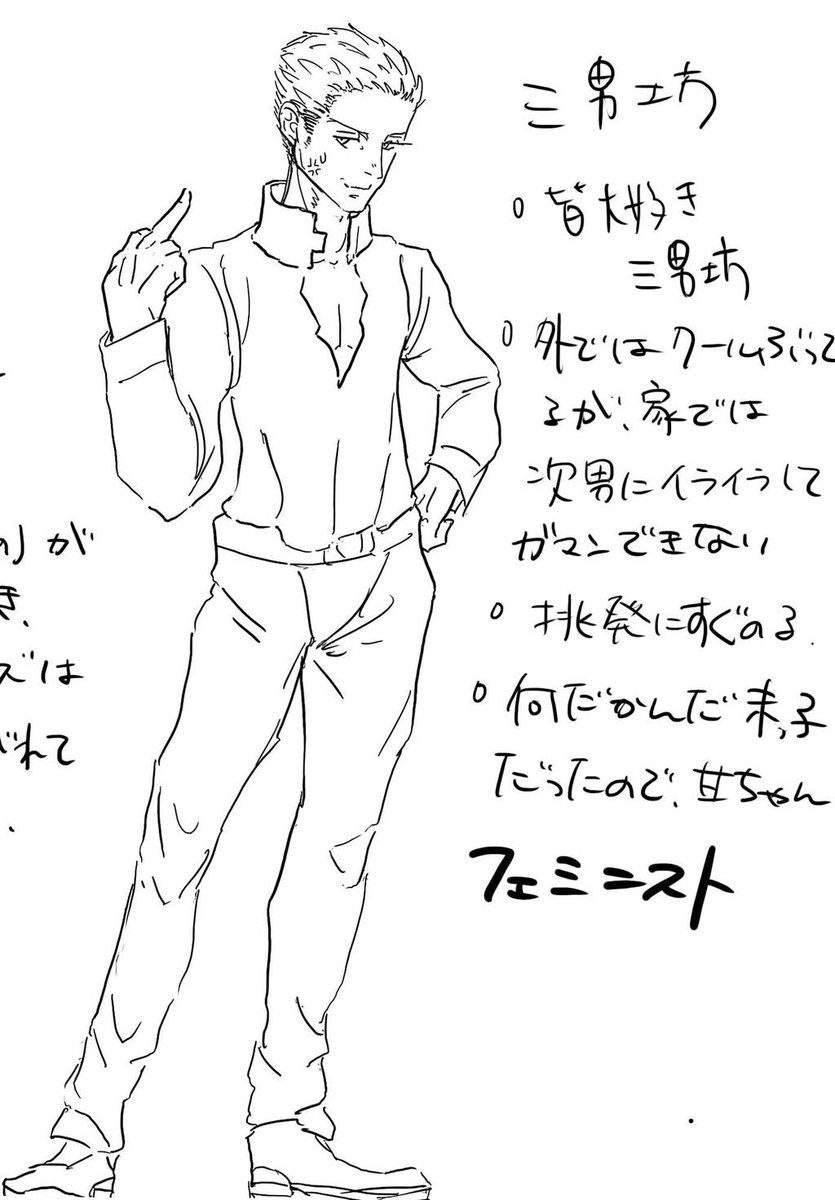 三男坊
皆大好き
三男坊
外ではクールぶって
るが、家では
次男にイライラして
ガマンできない
挑発にすぐのる
何だかんだ末っ子
だったので、甘ちゃん
フェミニスト
が
き、
ズは
れて